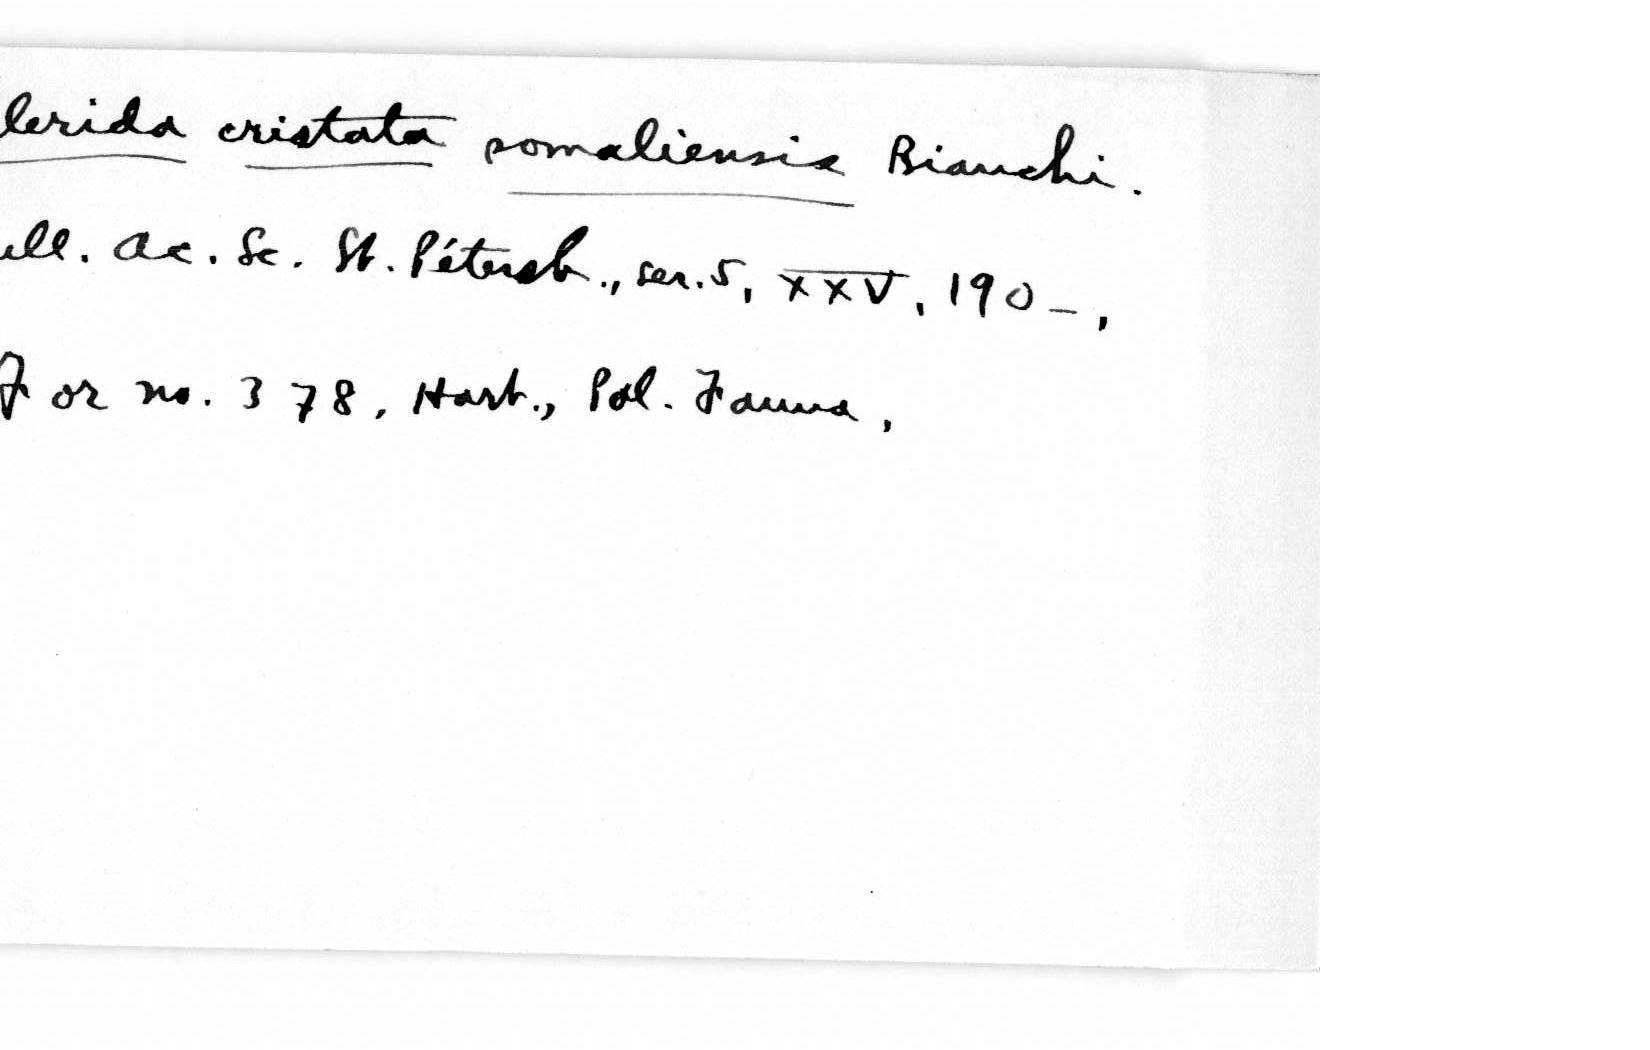 lerida cristata somaliensis Bianchi.
ull. Ac. Sc. St. Pétersb., ser. 5, XXV, 190–,
For no. 378, Hart., Pal. Fauna,